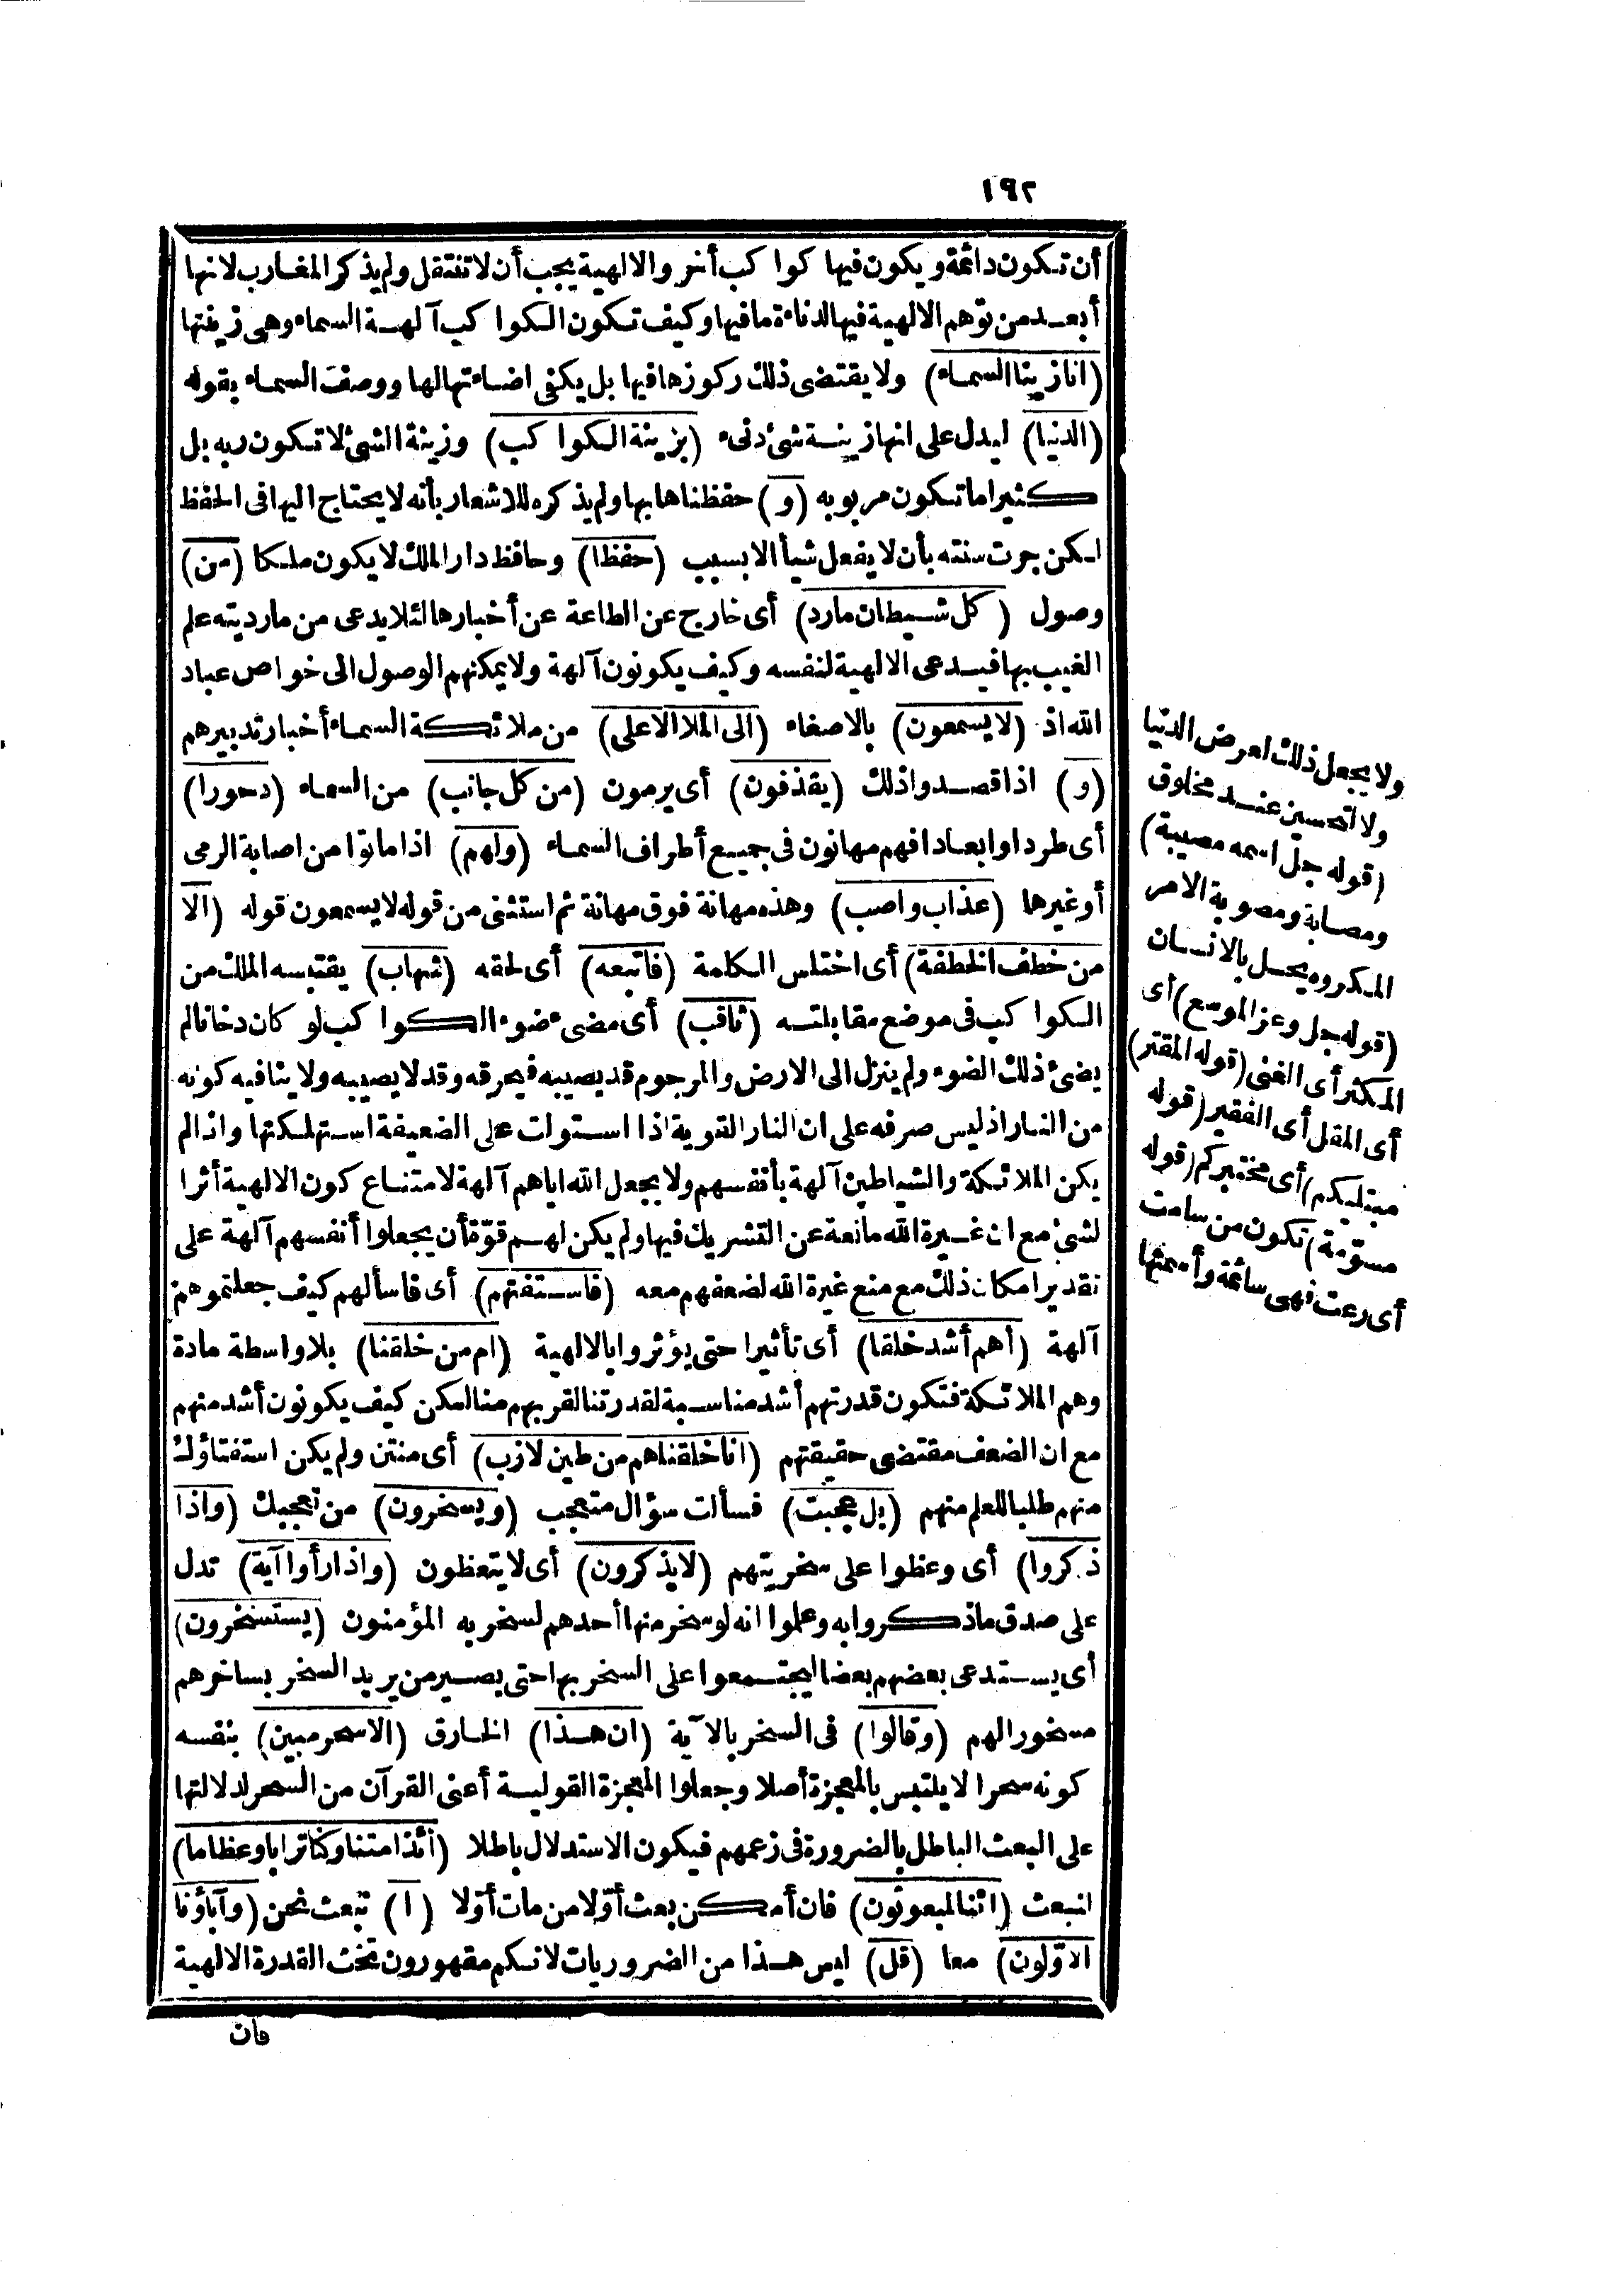 ١٩٢
أن تكون دائمة ويكون فيها كواكب أخر والالهية يجب أن لا تنتقل ولم يذكر المغارب لانها
أبعد من توهم الالهية فيها لدناءة ما فيها وكيف تكون الكواكب آلهة السماء وهى زينتها
(انا زينا السماء) ولا يقتضى ذلك ركوزها فيها بل يكفى اضاءتها لها ووصف السماء بقوله
(الدنيا) ليدل على انها زينة شئ دنىء (بزينة الكواكب) وزينة الشئ لا تكون ربه بل
كثيرا ما تكون مربوبه (و) حفظناها بها ولم يذكره للاشعار بأنه لا يحتاج اليها فى الحفظ
لكن جرت سنته بأن لا يفعل شيأ الا بسبب (حفظا) وحافظ دار الملك لا يكون ملكا (من)
وصول (كل شيطان مارد) أى خارج عن الطاعة عن أخبارها لئلا يدعى من ماردیته علم
الغيب بها فيدعى الالهية لنفسه وكيف يكونون آلهة ولا يمكنهم الوصول الى خواص عباد
الله اذ (لا يسمعون) بالاصغاء (الى الملا الاعلى) من ملائكة السماء أخبار تدبيرهم
(و) اذا قصدوا ذلك (يقذفون) أى يرمون (من كل جانب) من السماء (دحورا)
أى طردا وابعادا فهم مهانون فى جميع أطراف السماء (ولهم) اذا ماتوا من اصابة الرمى
أو غيرها (عذاب واصب) وهذه مهانة فوق مهانة ثم استثنى من قوله لا يسمعون قوله (الا
من خطف الخطفة) أى اختلس الكلمة (فاتبعه) أى لحقه (شهاب) يقتبسه الملك من
الكواكب فى موضع مقابلته (ثاقب) أى مضىء ضوء الكواكب لو كان دخانا لم
يضئ ذلك الضوء ولم ينزل الى الارض والمرجوم قد يصيبه فيحرقه وقد لا يصيبه ولا ينافيه كونه
من النار اذ ليس صرفه على ان النار القوية اذا استوات على الضعيفة استهلكتها واذا لم
يكن الملائكة والشياطين آلهة بأنفسهم ولا يجعل الله اياهم آلهة لامتناع كون الالهية أثرا
لشئ مع ان غيرة الله مانعة عن التشريك فيها ولم يكن لهم قوّة أن يجعلوا أنفسهم آلهة على
تقدير امكان ذلك مع منع غيرة الله لضعفهم معه (فاستفتهم) أى فاسألهم كيف جعلتموهم
آلهة (أهم أشد خلقا) أى تأثيرا حتى يؤثروا بالالهية (ام من خلقنا) بلا واسطة مادة
وهم الملائكة فتكون قدرتهم أشد مناسبة لقدرتنا لقربهم منا لكن كيف يكونون أشد منهم
مع ان الضعف مقتضى حقيقتهم (انا خلقناهم من طين لازب) أى منتن ولم يكن استفتاؤك
منهم طلبا للعلم منهم (بل عجبت) فسألت سؤال متعجب (ويسخرون) من تعجبك (واذا
ذكروا) أى وعظوا على سخريتهم (لا يذكرون) أى لا يتعظون (واذا رأوا آية) تدل
على صدق ما ذكروا به وعلموا انه لو سخر منها أحدهم لسخر به المؤمنون (يستسخرون)
أى يستدعى بعضهم بعضا ليجتمعوا على السخر بها حتى يصير من يريد السخر بساخرهم
مسخورا لهم (وقالوا) فى السخر بالآية (ان هذا) الخارق (الا سحر مبين) بنفسه
كونه سحرا لا يلتبس بالمعجزة أصلا وجعلوا المعجزة القولية أعنى القرآن من السحر لدلالتها
على البعث الباطل بالضرورة فى زعمهم فيكون الاستدلال باطلا (أئذا متنا وكنا ترابا وعظاما)
انبعث (ائنا لمبعوثون) فان أمكن بعث أوّلا من مات أوّلا (ا) نبعث نحن (وآباؤنا
الاوّلون) معا (قل) ليس هذا من الضروريات لانكم مقهورون تحت القدرة الالهية
فان
ولا يجعل ذلك لعرض الدنيا
ولا لتحسين عند مخلوق
(قوله جل اسمه مصيبة)
ومصابة ومصوبة الامر
المكروه يحل بالانسان
(قوله جل وعز الموسع) أى
المكثر أى الغنى (قوله المقتر)
أى المقل أى الفقير (قوله
مبتليكم) أى مختبركم (قوله
مسوّمة) تكون من سامت
أى رعت فهى سائمة وأسمتها